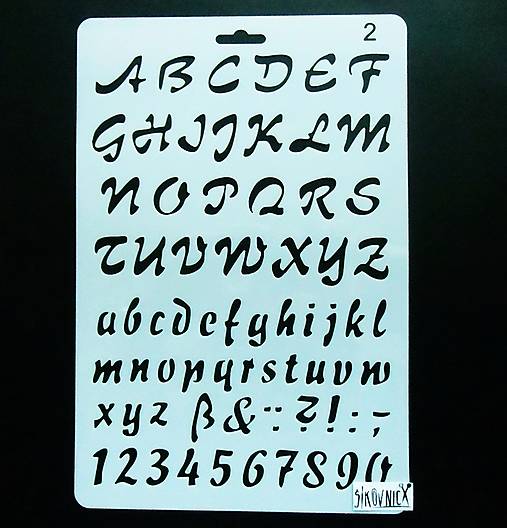 2
A B C D E F
G H I J K L M
N O P Q R S
T U V W X Y Z
a b c d e f g h i j k l
m n o p q r s t u v w
x y z ß & ¨ : ? ! : , -
1 2 3 4 5 6 7 8 9 0
SIKOVNICX